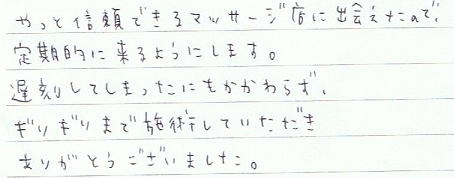 やっと信頼できるマッサージ店に出会えたので、
定期的に来るようにします。
遅刻してしまったにもかかわらず、
ギリギリまで施術していただき
ありがとうございました。